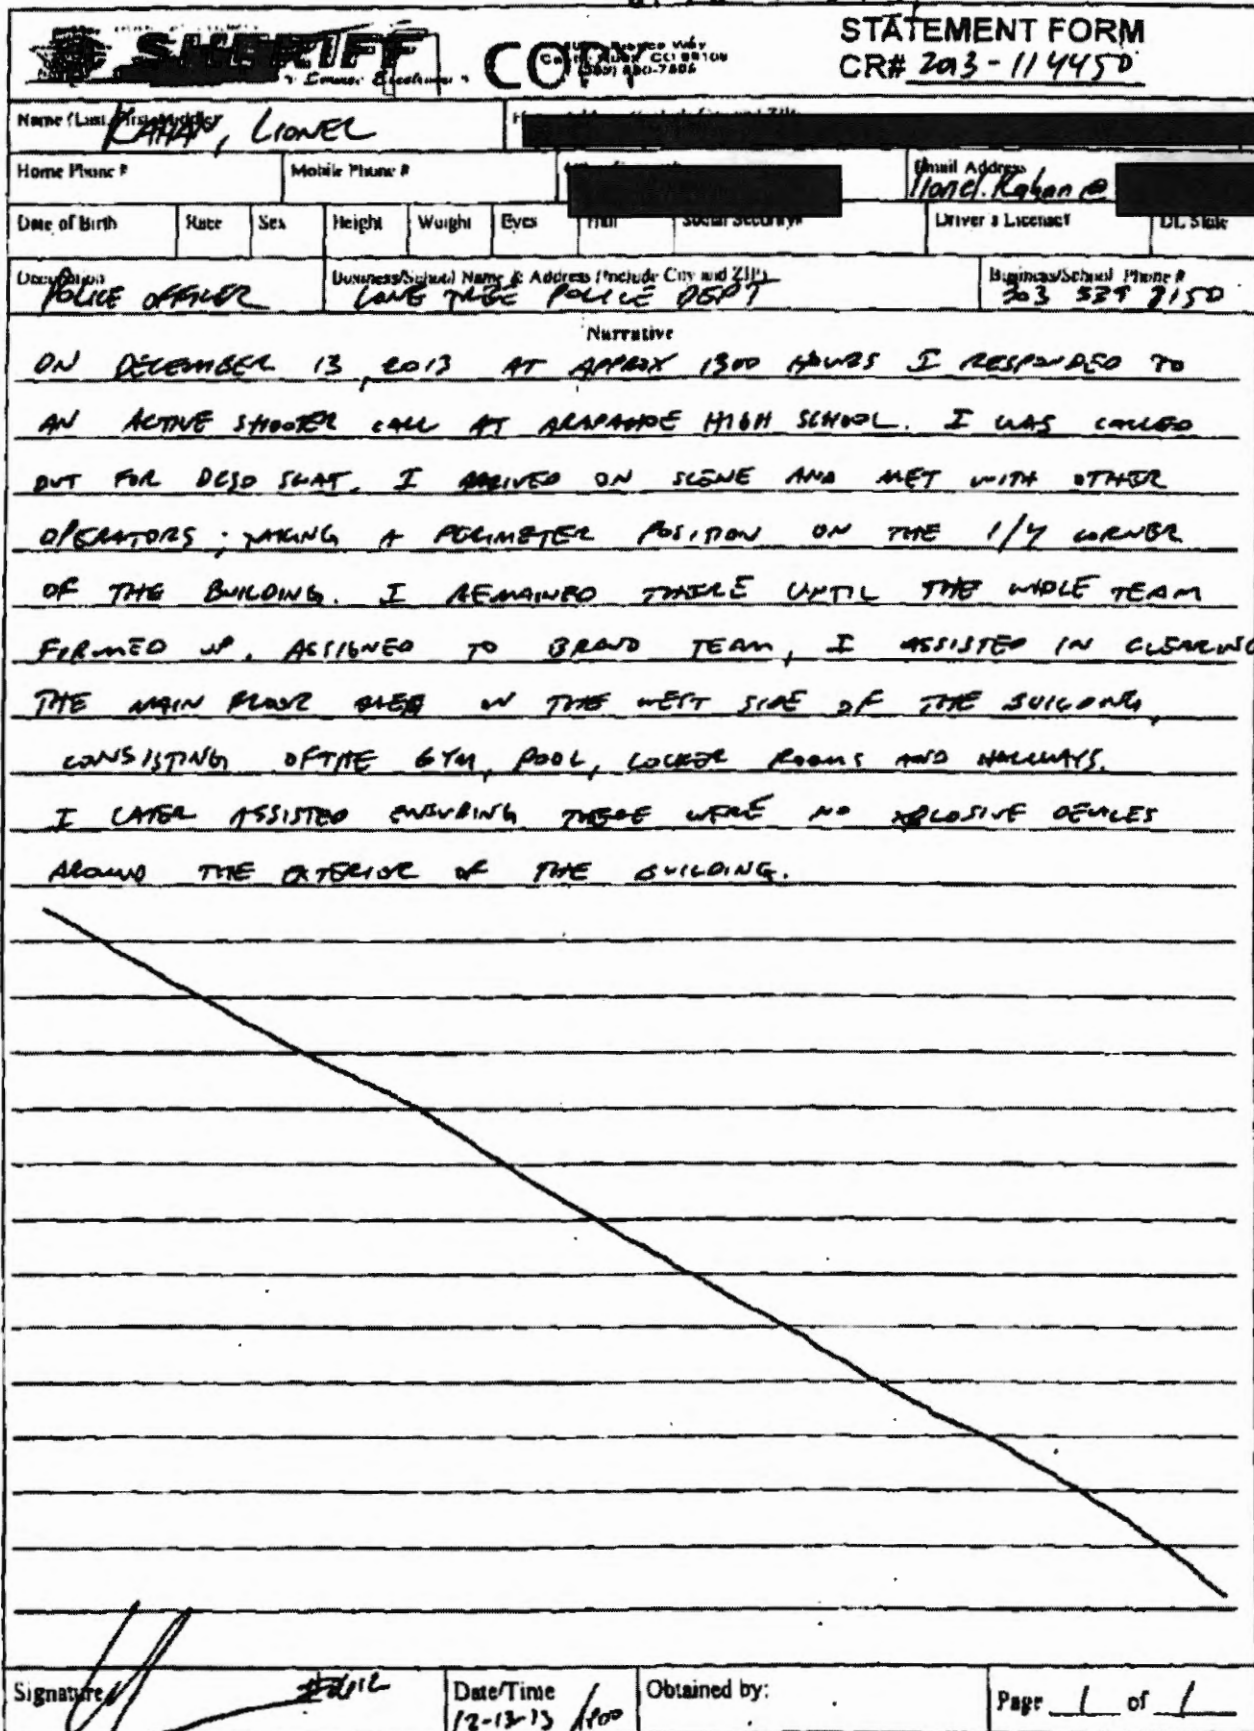 SHERIFF
COPY
STATEMENT FORM
CR# 2013-114450
Name (Last, First, Middle)
KAHAN, LIONEL
Home Phone #
Mobile Phone #
Email Address
lionel.kahan@
Date of Birth
Race
Sex
Height
Weight
Eyes
Hair
Social Security #
Driver's License#
DL State
Occupation
POLICE OFFICER
Business/School Name & Address (Include City and ZIP)
LONE TREE POLICE DEPT
Business/School Phone #
303 339 8150
Narrative
ON DECEMBER 13, 2013 AT APPROX 1300 HOURS I RESPONDED TO
AN ACTIVE SHOOTER CALL AT ARAPAHOE HIGH SCHOOL. I WAS CALLED
OUT FOR DCSO SWAT. I ARRIVED ON SCENE AND MET WITH OTHER
OPERATORS; TAKING A PERIMETER POSITION ON THE 1/4 CORNER
OF THE BUILDING. I REMAINED THERE UNTIL THE WHOLE TEAM
FIRMED UP. ASSIGNED TO BRAVO TEAM, I ASSISTED IN CLEARING
THE MAIN FLOOR AREA ON THE WEST SIDE OF THE BUILDING,
CONSISTING OF THE GYM, POOL, LOCKER ROOMS AND HALLWAYS.
I LATER ASSISTED ENSURING THERE WERE NO XPLOSIVE DEVICES
AROUND THE EXTERIOR OF THE BUILDING.
Signature
Date/Time
12-13-13 1900
Obtained by:
Page 1 of 1